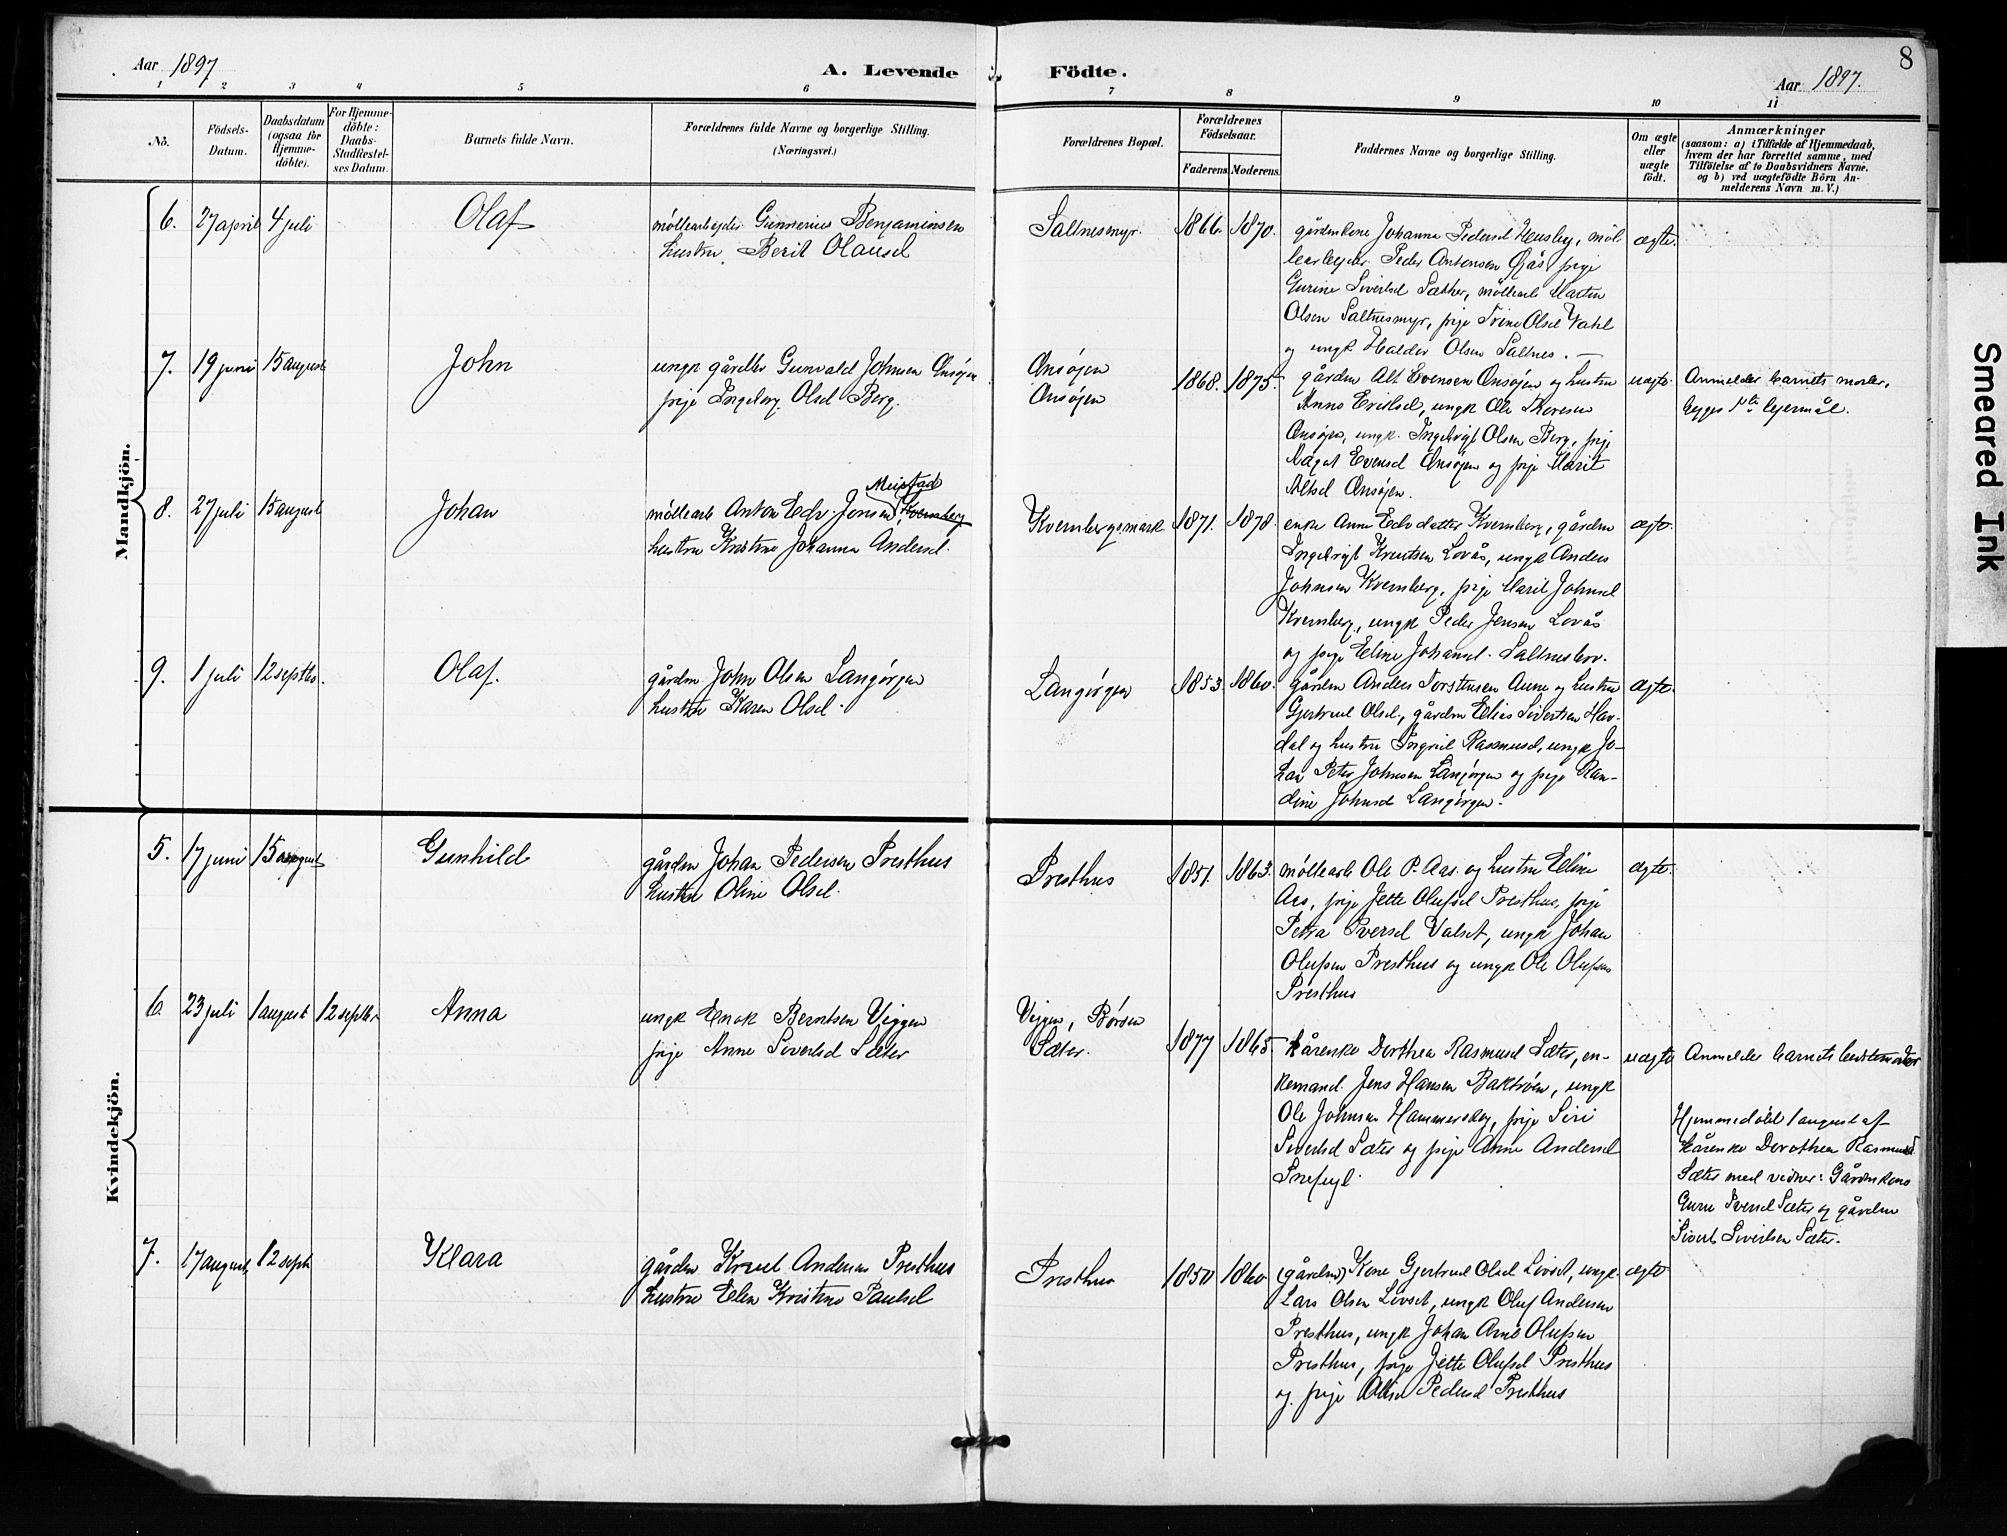 Aar 1897
A. Levende
Födte.
Aar 1897.
8
1 2 3 4 5 6 7 8 9 10 11
No.
Födsels-
Datum.
Daabsdatum
(ogsaa for
Hjemme-
döbte).
For Hjemme-
döbte:
Daabs-
Stadfæstel-
ses Datum.
Barnets fulde Navn.
Forældrenes fulde Navne og borgerlige Stilling.
(Næringsvei.)
Forældrenes Bopæl.
Forældrenes
Födselsaar.
Faderens Moderens
Faddernes Navne og borgerlige Stilling.
Om ægte
eller
uægte
födt.
Anmærkninger
(saasom: a) i Tilfælde af Hjemmedaab,
hvem der har forrettet samme, med
Tilföielse af to Daabsvidners Navne.
og b) ved uægtefödte Börn An-
melderens Navn m. V.)
Mandkjön.
6. 27 april 4 juli
Olaf
møllearbejder Gunnerius Benjaminsen
hustru Berit Olausd
Saltnesmyr.
1866. 1870.
gårdmkone Johanna Pedersd Hensby, møl-
learbejder Peder Antonsen Øjås, pige
Gurine Sivertsd Sæther, møllearb Martin
Olsen Saltnesmyr, pige Trine Olsd Vahl
og ungk Haldor Olsen Saltnes. —
ægte.
7. 19 juni 15 august
John
ungk gårdbr Gunvald Johnsen Onsøjen
pige Ingeborg Olsd Berg.
Onsøjen
Onsøjen
1868. 1875.
gårdm Alt Evensen Onsøjen og hustru
Anne Eriksd, ungk Ole Thoresen
Onsøjen, ungk. Ingebrigt Olsen Berg, pige
Aagot Evensd Onsøjen og pige Marit
Altsd Onsøjen.
uægte.
Anmelder barnets moder,
begges 1ste lejermål.
8. 27 juli 15 august
Johan
Meistad
møllearb Anton Edv. Jonsen Kvernberg
hustru Kristine Johanna Andersd.
Kvernbergsmark
1871. 1878.
enke Anne Edv datter Kvernberg, gårdm
Ingebrigt Knutsen Lovås, ungk Anders
Johnsen Kvernberg, pige Marit Johnsd
Kvernberg, ungk Peder Jensen Lovås
og pige Eline Johansd.
ægte.
9. 1 juli 12 septbr.
Olaf.
gårdm John Olsen Langørgen
hustru Karen Olsd.
Langørgen
1853. 1860.
gårdm Anders Torstensen Aune og hustru
Gjertrud Olsd, gårdm Elias Sivertsen Hav-
dal og hustru Ingrid Rasmusd, ungk Jo-
han Peter Johnsen Langørgen og pige Ran-
dine Johnsd Langørgen.
ægte.
Kvindekjön.
5. 17 juni 15 august
Gunhild
gårdm Johan Pedersen Presthus
hustru Oline Olsd.
Presthus
1851. 1863.
møllearb Ole P. Aas. og hustru Eline
Aas, pige Jette Olufsd Presthus, pige
Petra Iversd Valset, ungk Johan
Olufsen Presthus og ungk Ole Olufsen
Presthus
ægte.
6. 23 juli 1 august 12 septbr.
Anna
ungk Enok Berntsen Viggen
pige Anne Sivertsd Sæter
Viggen, Børsen
Sæter.
1877 1865.
kårenke Dorthea Rasmusd Sæter, en-
kemand Jens Hansen Bakkrøen, ungk
Ole Johnsen Hammerskog, pige Siri
Sivertsd Sæter og pige Anne Andersd
Snefugl.
uægte
Anmelder barnets bedstemoder
Hjemmedøbt 1 august af
kårenke Dorothea Rasmusd
Sæter med vidner: Gårdmkone
Guru Iversd Sæter og gårdm
Sivert Sivertsen Sæter.
7. 17 august 12 septb
Klara
gårdm Knut Andersen Presthus
hustru Elen Kristine Paulsd
Presthus
1850 1860
(gårdms) Kone Gjertrud Olsd Livset, ungk.
Lars Olsen Livset, ungk Oluf Andersen
Presthus, ungk Johan Arnt Olufsen
Presthus, pige Jette Olufsd Presthus
og pige Pedersd Presthus
ægte
Smeared Ink